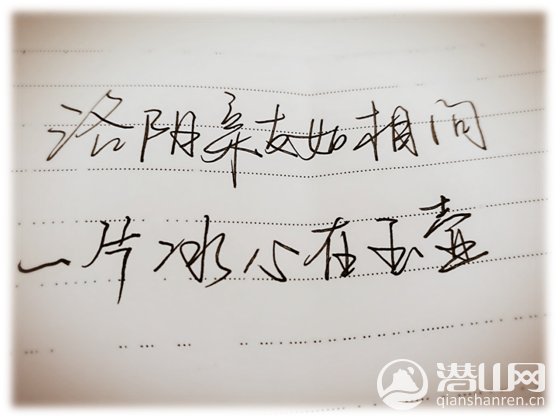 洛阳亲友如相问
一片冰心在玉壶
潜山网
qianshanren.cn